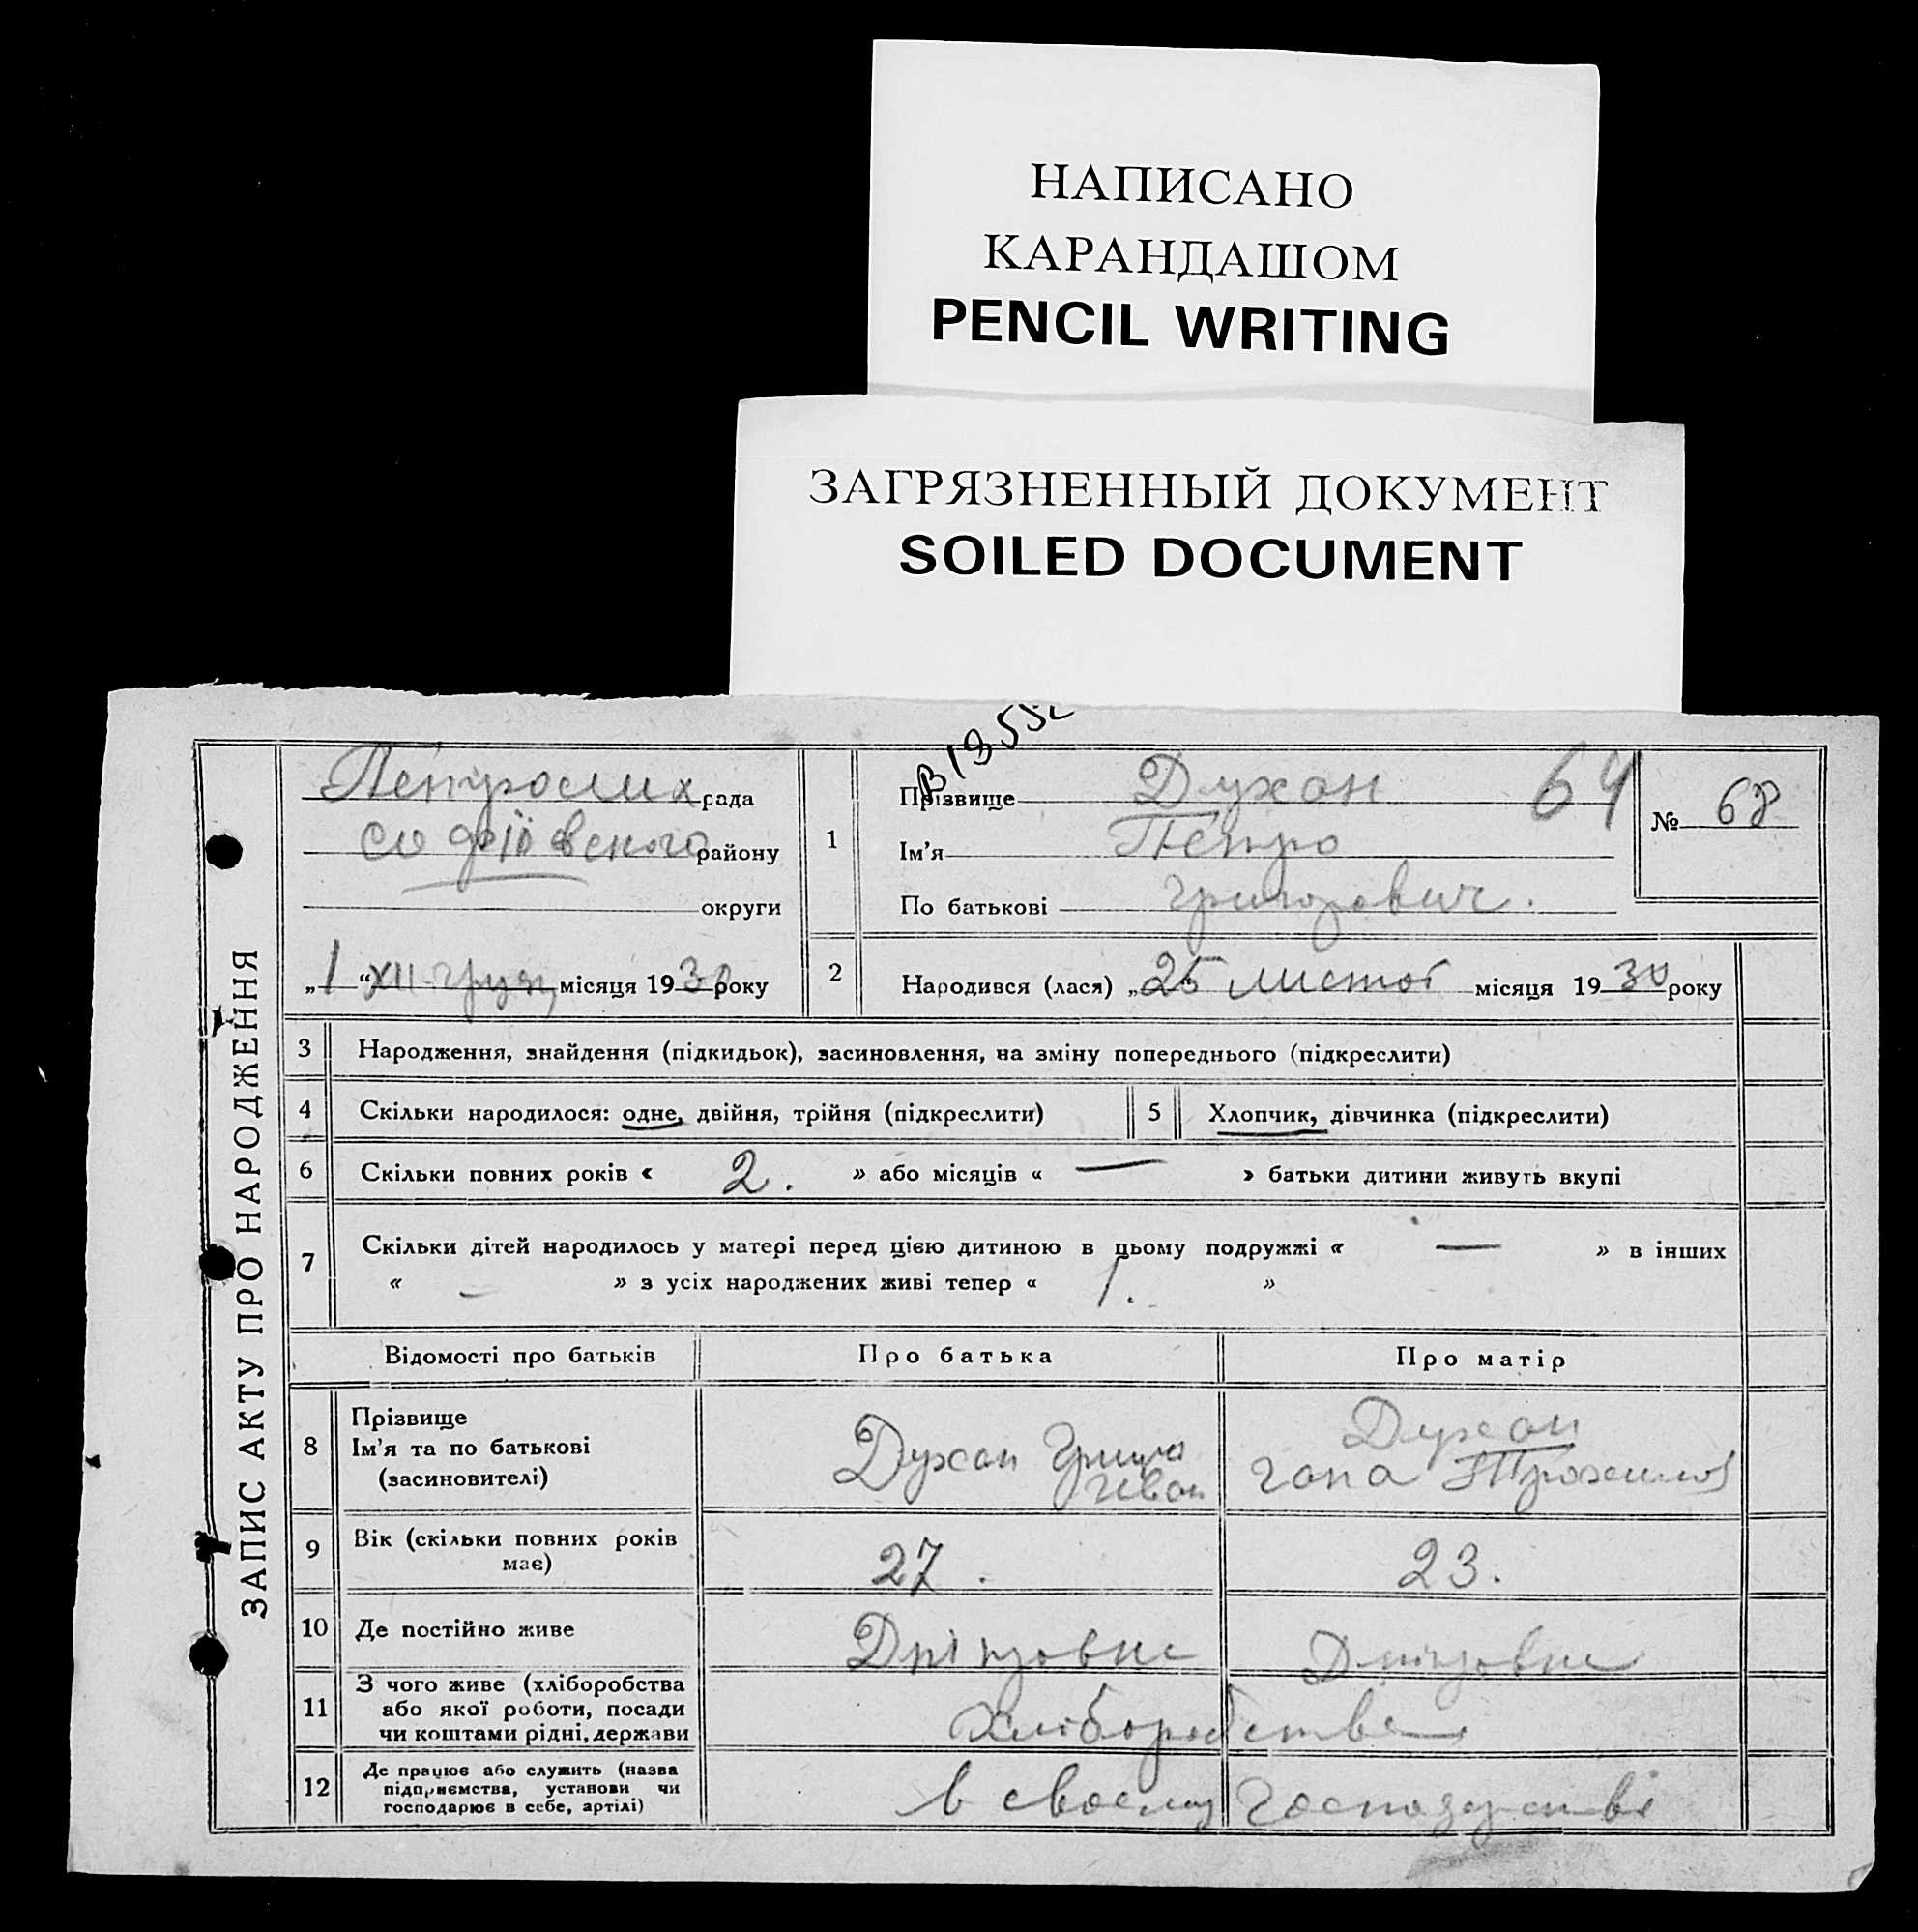 НАПИСАНО
КАРАНДАШОМ
PENCIL WRITING
ЗАГРЯЗНЕННЫЙ ДОКУМЕНТ
SOILED DOCUMENT
ЗАПИС АКТУ ПРО НАРОДЖЕННЯ
рада
району
округи
„1“ XII місяця 1930 року
1
Прізвище Духан 64
Ім'я Петро
По батькові Григорович.
№ 68
2
Народився (лася) „25 листоп місяця 1930 року
3 Народження, знайдення (підкидьок), засиновлення, на зміну попереднього (підкреслити)
4 Скільки народилося: одне, двійня, трійня (підкреслити)
5 Хлопчик, дівчинка (підкреслити)
6 Скільки повних років « 2. » або місяців « — » батьки дитини живуть вкупі
7 Скільки дітей народилось у матері перед цією дитиною в цьому подружжі « — » в інших
« – » з усіх народжених живі тепер « 1. »
Відомості про батьків
Про батька
Про матір
8
Прізвище
Ім'я та по батькові
(засиновителі)
Духан
Іван
Духан
Гапа
9
Вік (скільки повних років
має)
27.
23.
10 Де постійно живе
11
З чого живе (хліборобства
або якої роботи, посади
чи коштами рідні, держави
Хліборобства
12
Де працює або служить (назва
підприємства, установи чи
господарює в себе, артілі)
в своему господарстві